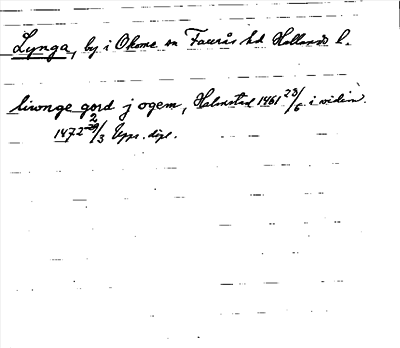 Lynga, by i Okome sn Faurås hd Hallands l.
liwnge gord j ogem, Halmstad 1461 23/6 i vidim.
1472 29/3 Upps. dipl.